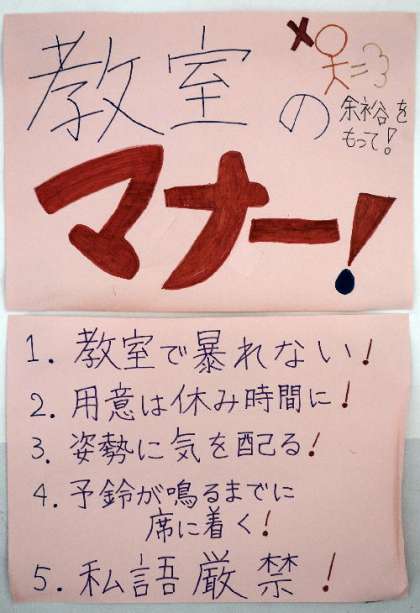 教室の
余裕を
もって!
マナー!
1. 教室で暴れない!
2. 用意は休み時間に!
3. 姿勢に気を配る!
4. 予鈴が鳴るまでに
席に着く!
5. 私語厳禁!